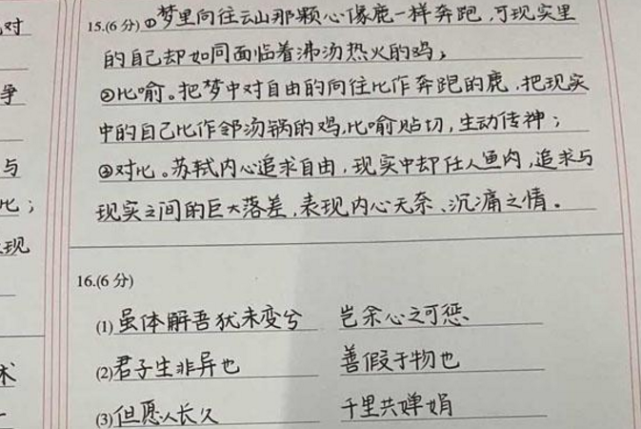 对
争
与
比；
现
术
15.(6分)①梦里向往云山那颗心像鹿一样奔跑，可现实里
的自己却如同面临着沸汤热火的鸡；
②比喻。把梦中对自由的向往比作奔跑的鹿，把现实
中的自己比作邻汤锅的鸡，比喻贴切，生动传神；
③对比。苏轼内心追求自由，现实中却任人鱼肉，追求与
现实之间的巨大落差，表现内心无奈、沉痛之情。
16.(6分)
(1)虽体解吾犹未变兮 岂余心之可惩
(2)君子生非异也 善假于物也
(3)但愿人长久 千里共婵娟